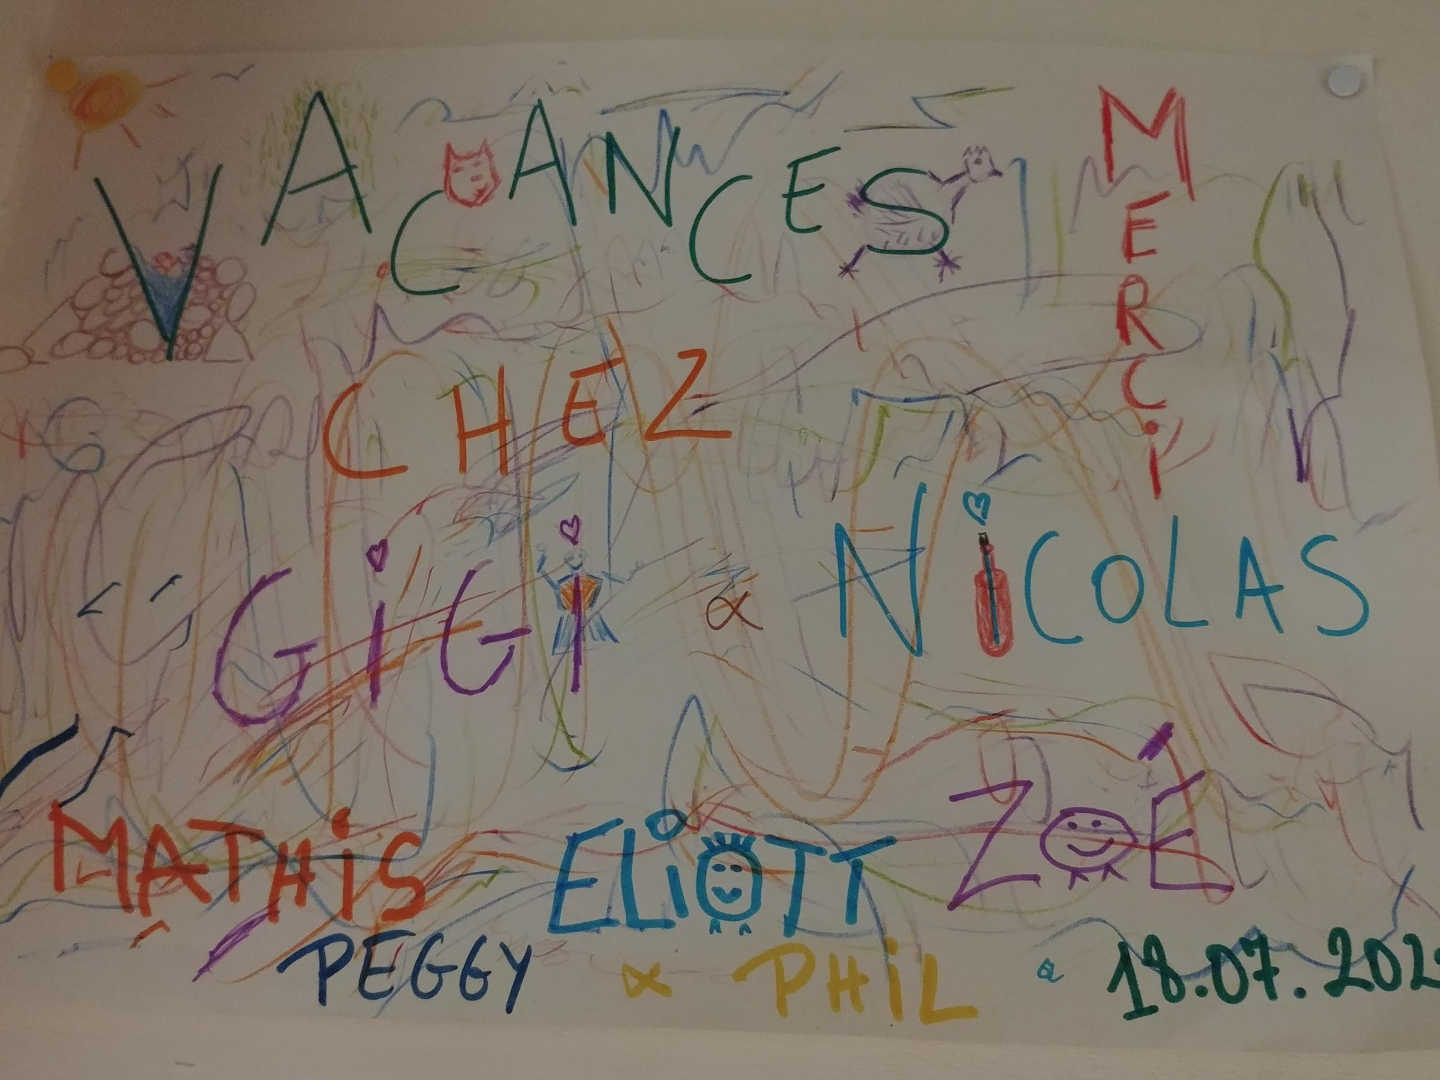 VACANCES
MERCi
CHEZ
GiGi & NiCOLAS
MATHiS ELiOTT ZOÉ
PEGGY & PHiL & 18.07.202